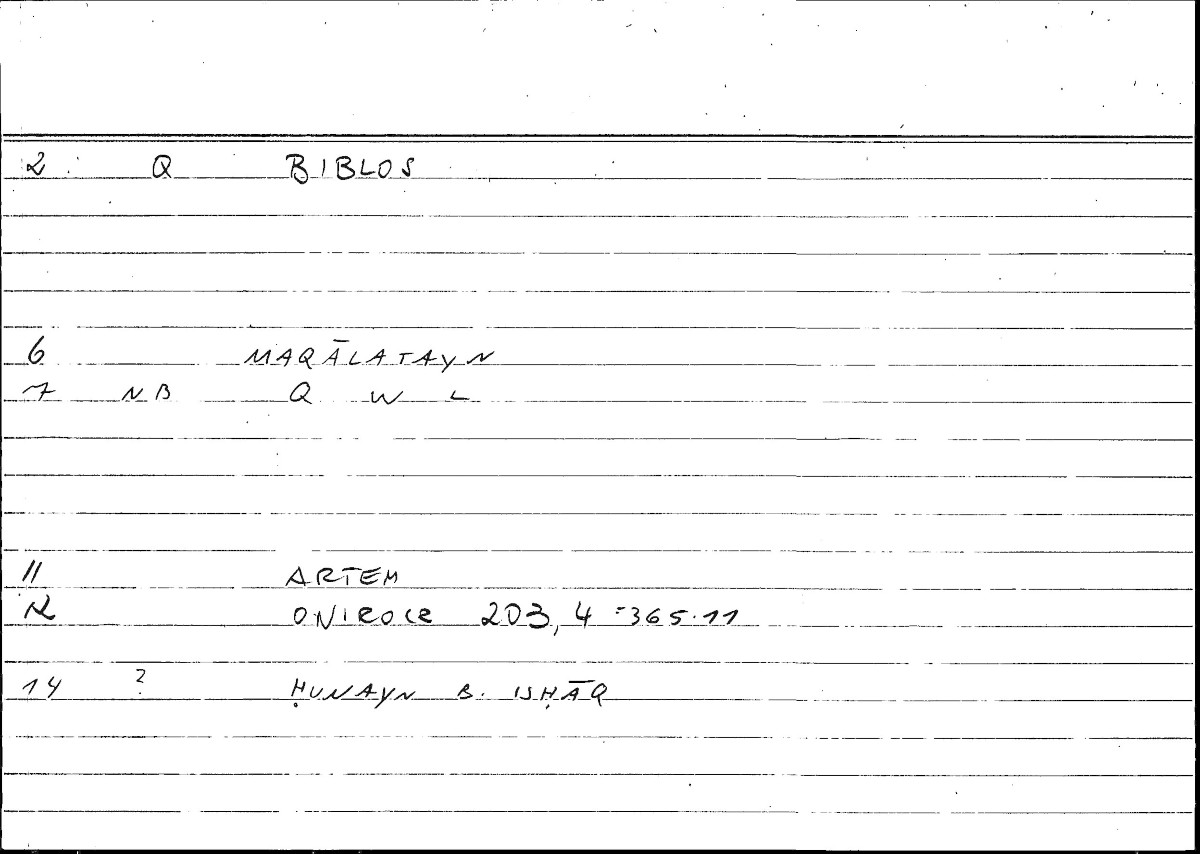 2 Q BIBLOS
6 MAQĀLATAYN
7 NB Q W L
11 ARTEM
12 ONIROCR 203, 4 = 365.11
14 ? ḤUNAYN B. ISḤĀQ